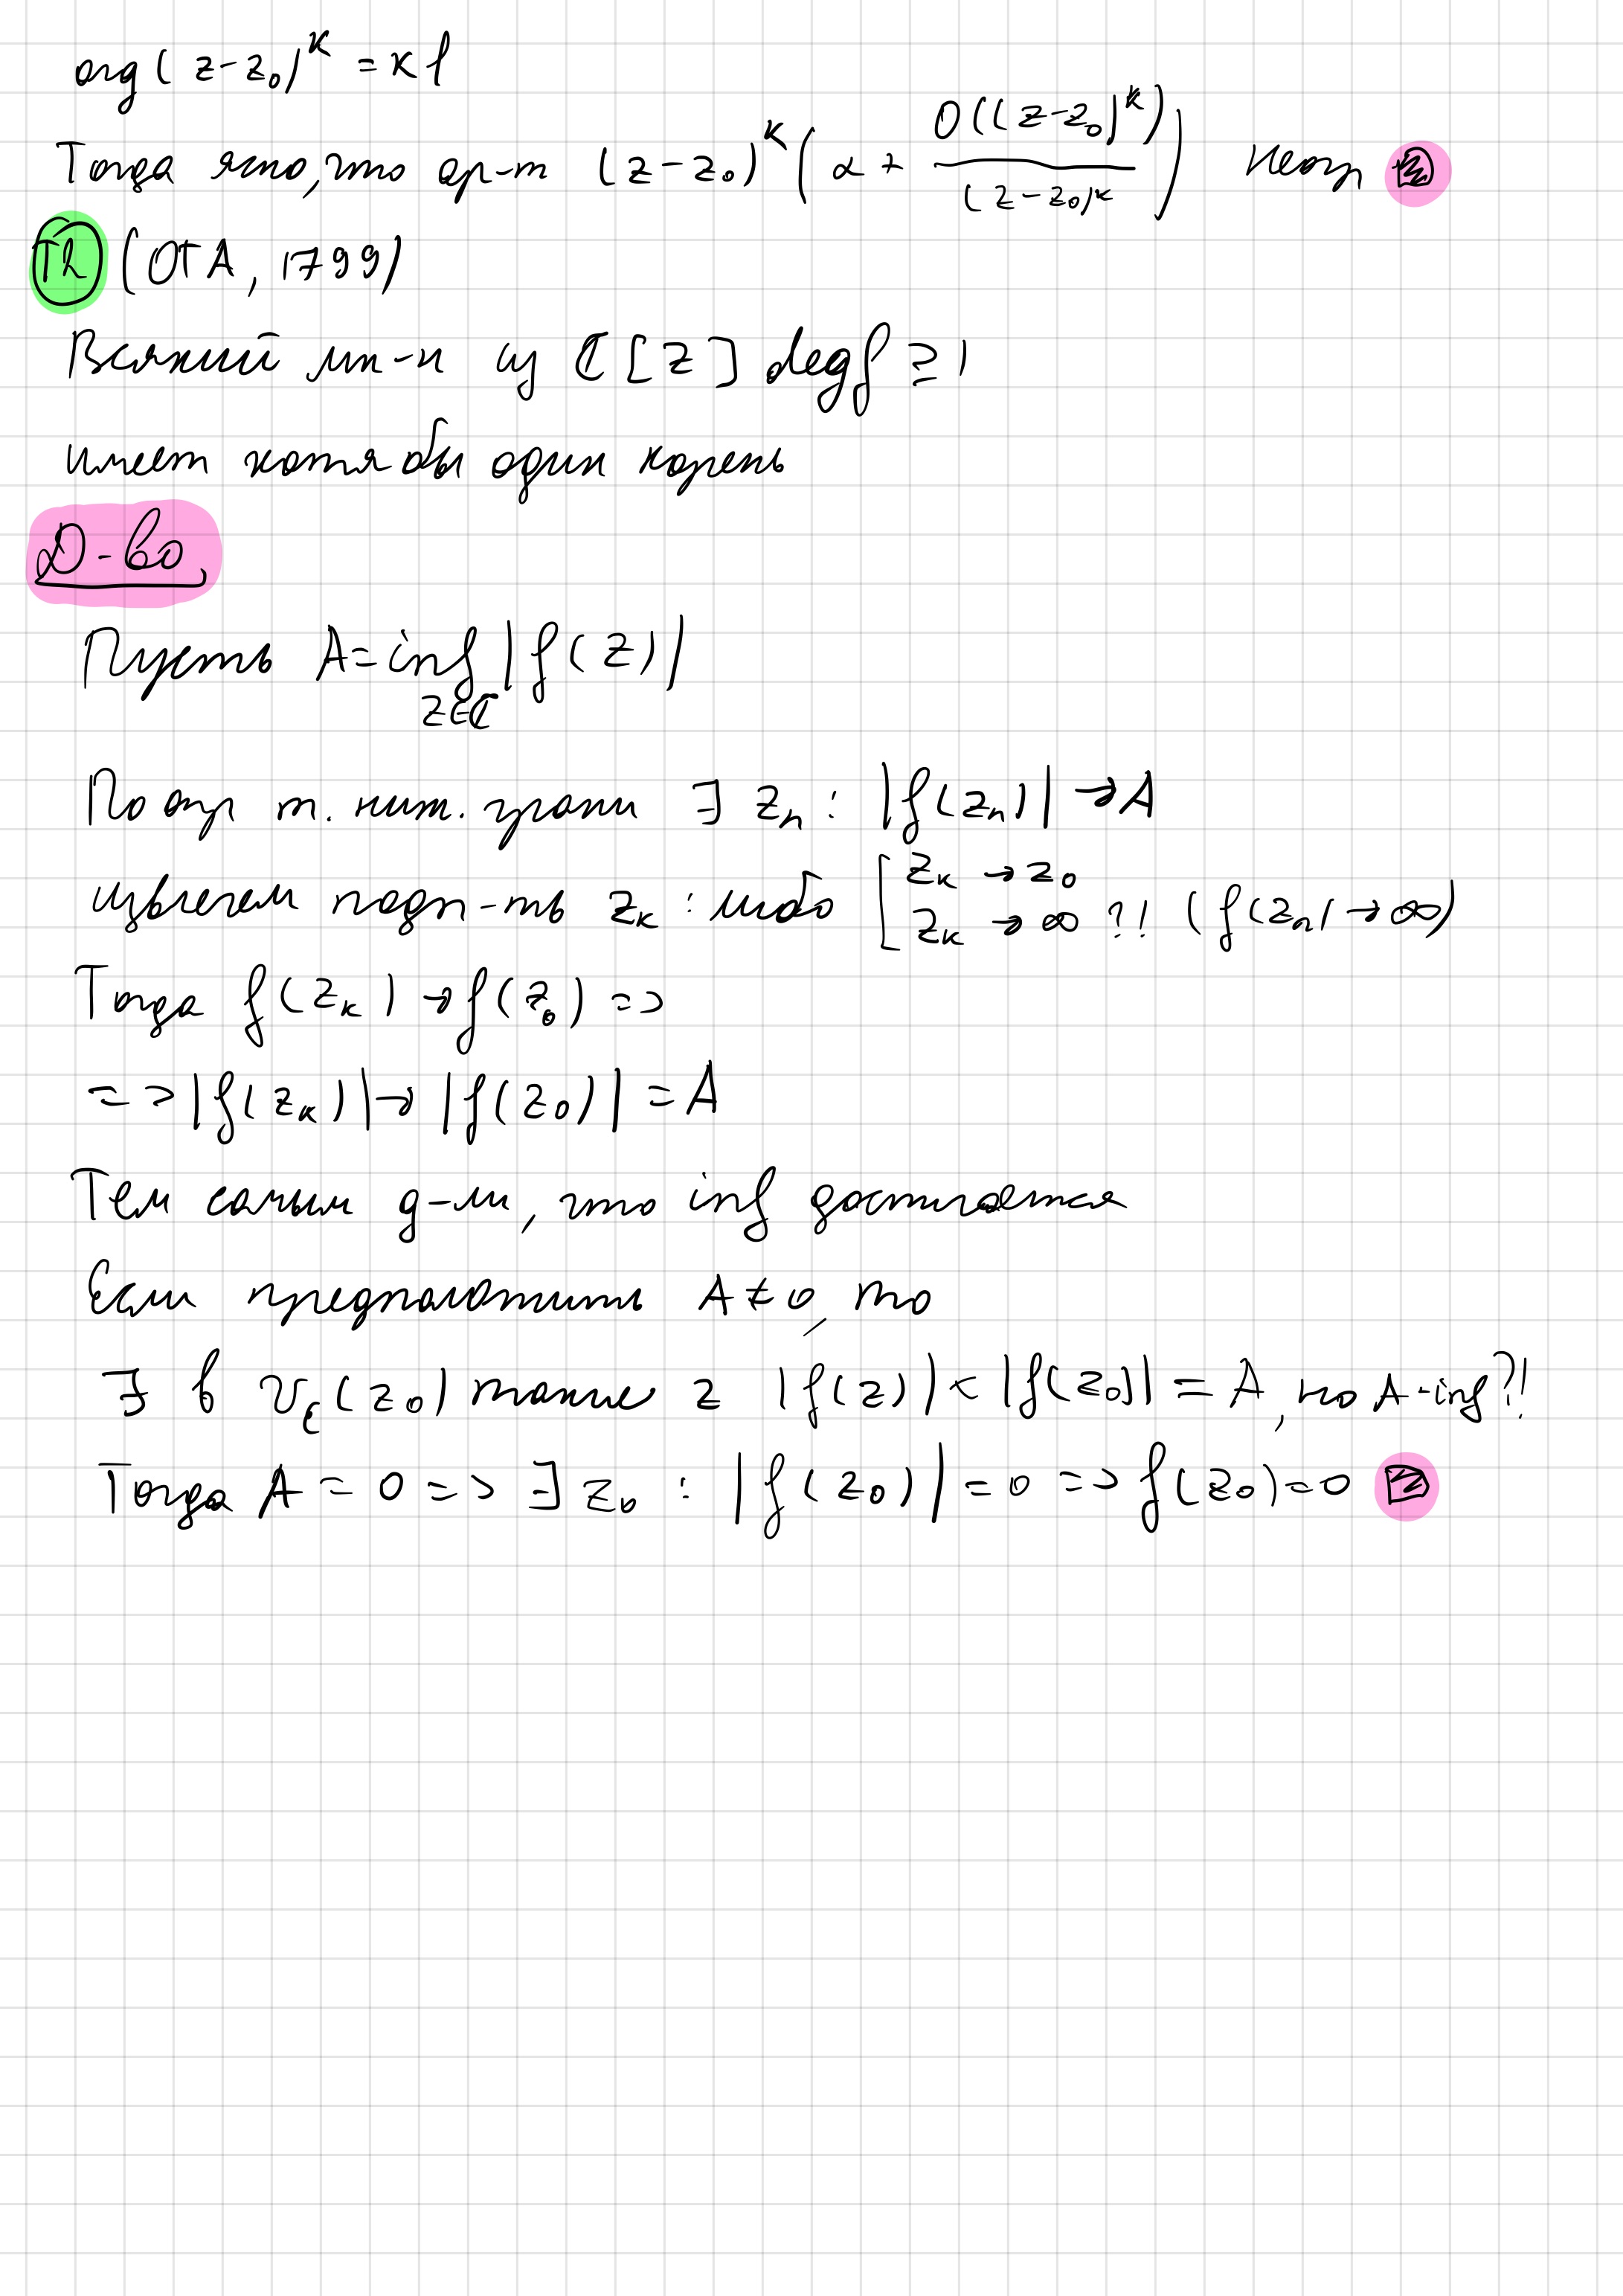 arg(z-z₀)^k = kφ
Тогда ясно, что ар-т (z-z₀)^k (α + O((z-z₀)^k) / (z-z₀)^k)
Th (ОТА, 1799)
Всякий мн-н из ℂ[z] deg f ≥ 1
имеет хотя бы один корень
Д-во.
Пусть A = inf |f(z)|
z∈ℂ
По опр т. ниж. грани ∃ zₙ : |f(zₙ)| → A
извлечем подп-ть zₖ : либо [ zₖ → z₀
zₖ → ∞ ?! (f(zₙ) → ∞)
Тогда f(zₖ) → f(z₀) =>
=> |f(zₖ)| → |f(z₀)| = A
Тем самым д-ли, что inf достигается
Если предположить A ≠ 0, то
∃ в U_ε(z₀) такие z |f(z)| < |f(z₀)| = A, но A - inf ?!
Тогда A = 0 => ∃ z₀ : |f(z₀)| = 0 => f(z₀) = 0